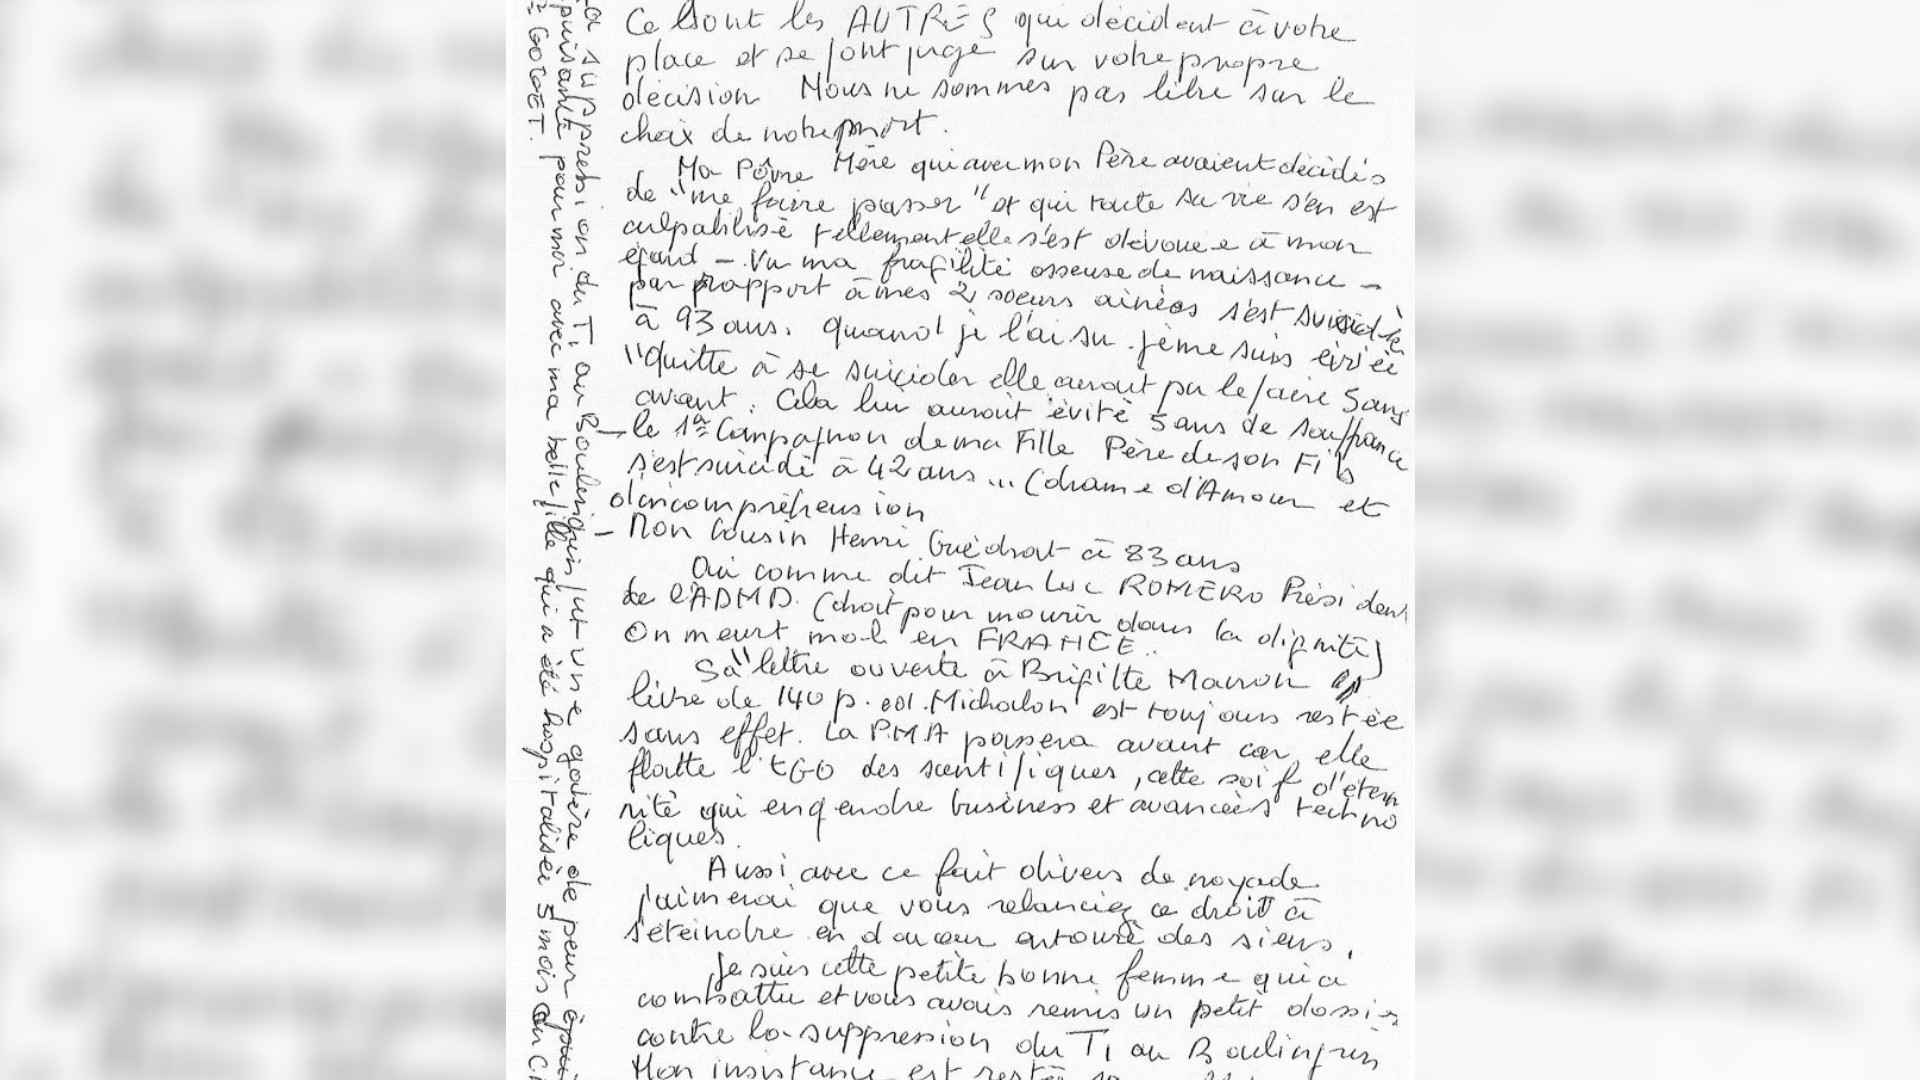 Ce sont les AUTRES qui décident à votre
place et se font juge sur votre propre
décision Nous ne sommes pas libre sur le
choix de notre mort.
Ma Pôvre Mère qui avec mon Père avaient décidés
de "me faire passer" et qui toute sa vie s'en est
culpabilisé tellement elle s'est dévouée à mon
égard - Vu ma fragilité osseuse de naissance -
par rapport à mes 2 soeurs ainées s'est suicidée
à 93 ans. quand je l'ai su je me suis
"quitte à se suicider elle aurait pu le faire 5 ans
avant. Cela lui auroit évité 5 ans de souffrance
- le 1er Compagnon de ma Fille Père de son Fils
s'est suicidé à 42 ans... (drame d'Amour et
d'incompréhension
- Mon Cousin Henri Guédrat à 83 ans
Oui comme dit Jean Luc ROMERO Président
de l'ADMD. (droit pour mourir dans la dignité)
On meurt mal en FRANCE..
Sa "lettre ouverte à Brigitte Macron
livre de 140 p. ed. Michalon est toujours restée
sans effet. La PMA passera avant car elle
flatte l'EGO des scentifiques, cette soif d'éter
nité qui engendre business et avancées techno
liques.
Aussi avec ce fait divers de noyade
j'aimerai que vous relanciez ce droit à
s'éteindre en douceur entouré des siens.
Je suis cette petite bonne femme qui a
combattu et vous avais remis un petit dossier
contre la suppression du T1 au Boulingrin
Mon insistance est restée
La suppression du T1 au Boulingrin fut une galère de peur
puisante pour moi avec ma belle fille qui a été hospitalisée 5 mois au
GOGET.